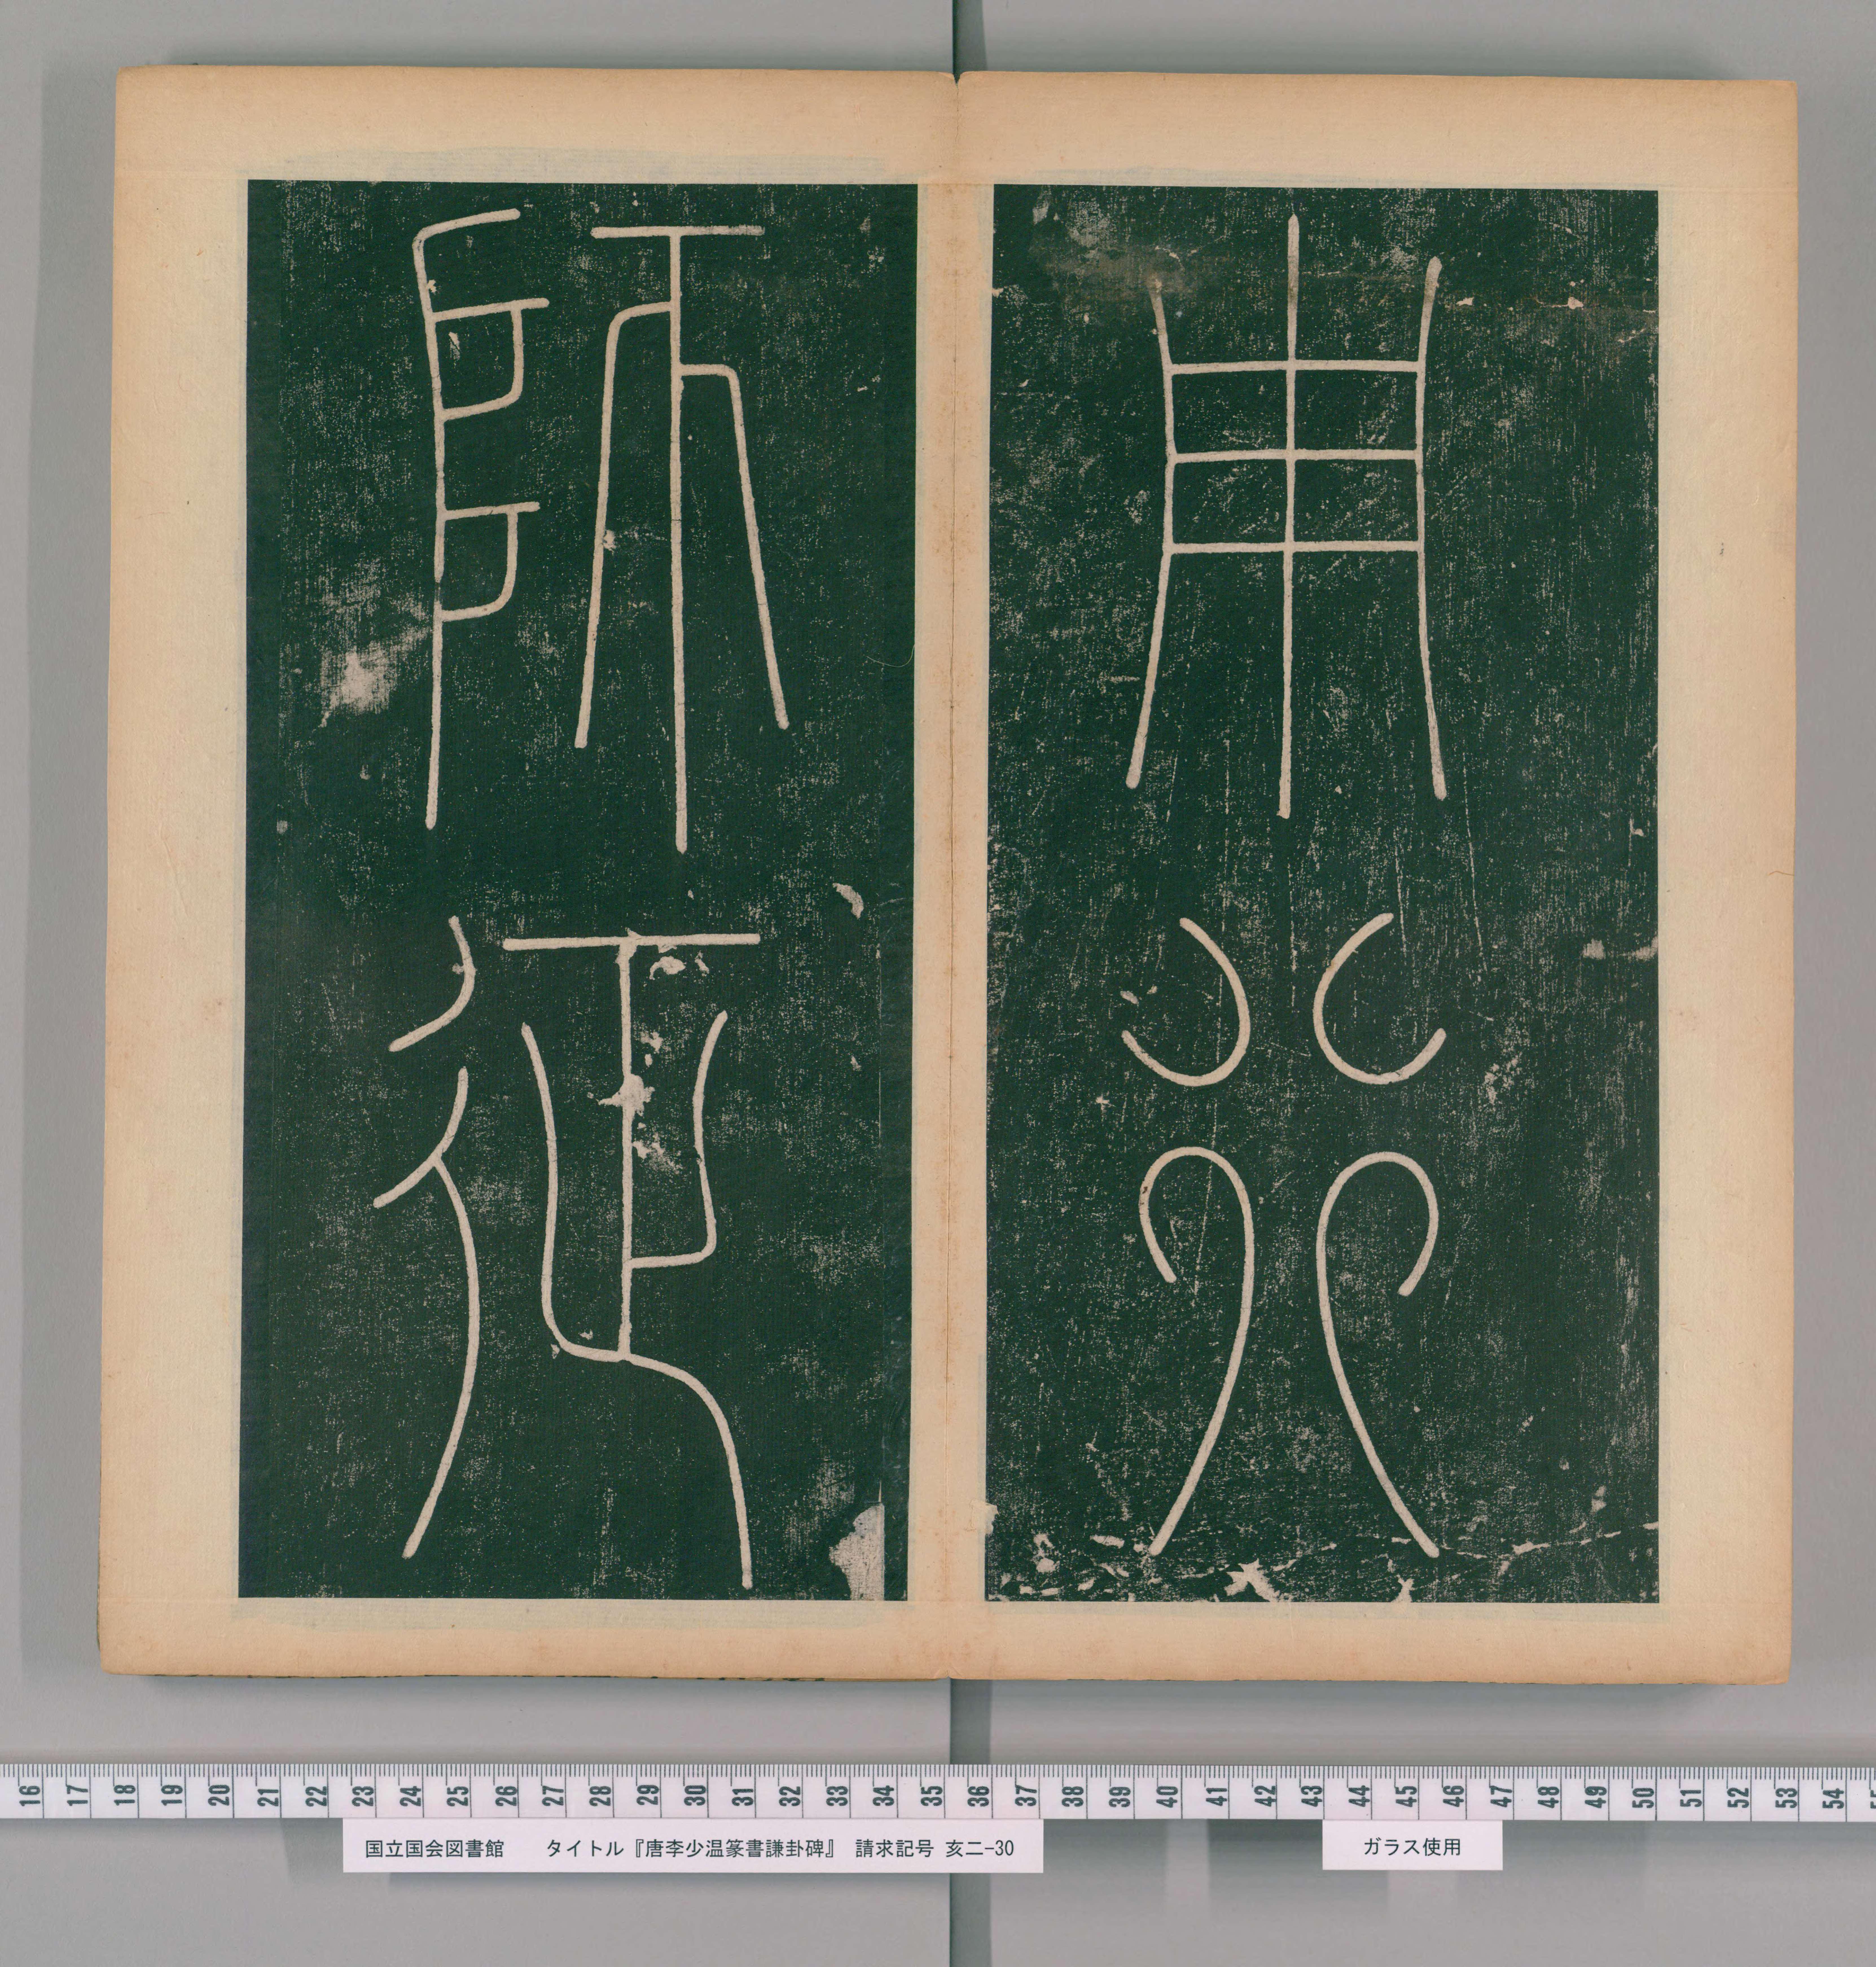 用行
師征
16 17 18 19 20 21 22 23 24 25 26 27 28 29 30 31 32 33 34 35 36 37 38 39 40 41 42 43 44 45 46 47 48 49 50 51 52 53 54
国立国会図書館 タイトル『唐李少温篆書謙卦碑』 請求記号 亥二-30
ガラス使用